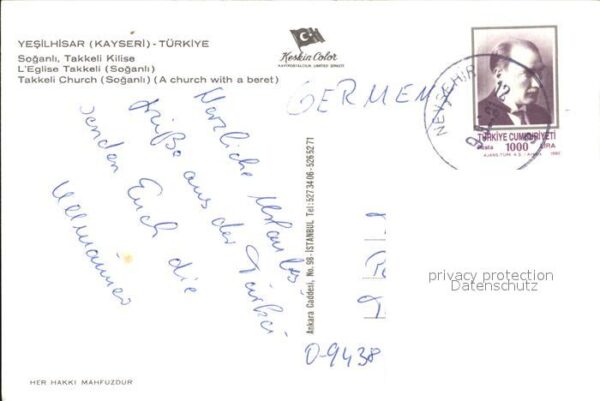 YEŞİLHİSAR (KAYSERİ) - TÜRKİYE
Soğanlı, Takkeli Kilise
L'Eglise Takkeli (Soğanlı)
Takkeli Church (Soğanlı) (A church with a beret)
Keskin Color
KARTPOSTALCILIK LIMITED ŞİRKETİ
NEVŞEHİR
TÜRKİYE CUMHURİYETİ
Posta 1000 LİRA
AJANS-TÜRK A.Ş.
GERMEN
Herzliche Urlaubs
grüße aus der Türkei
senden Euch die
Ankara Caddesi, No. 98-İSTANBUL Tel: 5273406-5265271
privacy protection
Datenschutz
D-9438
HER HAKKI MAHFUZDUR